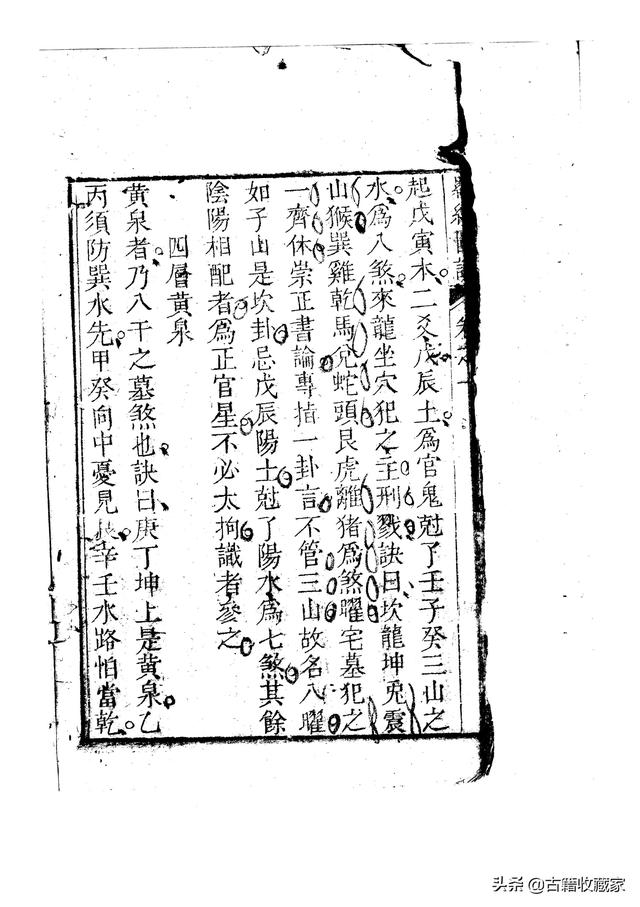 羅經圖説 卷之一
起戊寅木二爻戊辰土爲官鬼尅了壬子癸三山之
水爲八煞來龍坐穴犯之主刑戮訣曰坎龍坤兎震
山猴巽雞乾馬兌蛇頭艮虎離猪爲煞曜宅墓犯之
一齊休崇正書論專指一卦言不管三山故名八曜
如子山是坎卦忌戊辰陽土尅了陽水爲七煞其餘
陰陽相配者爲正官星不必太拘識者參之
四層黃泉
黃泉者乃八干之墓煞也訣曰庚丁坤上是黃泉乙
丙須防巽水先甲癸向中憂見艮辛壬水路怕當乾
头条 @古籍收藏家